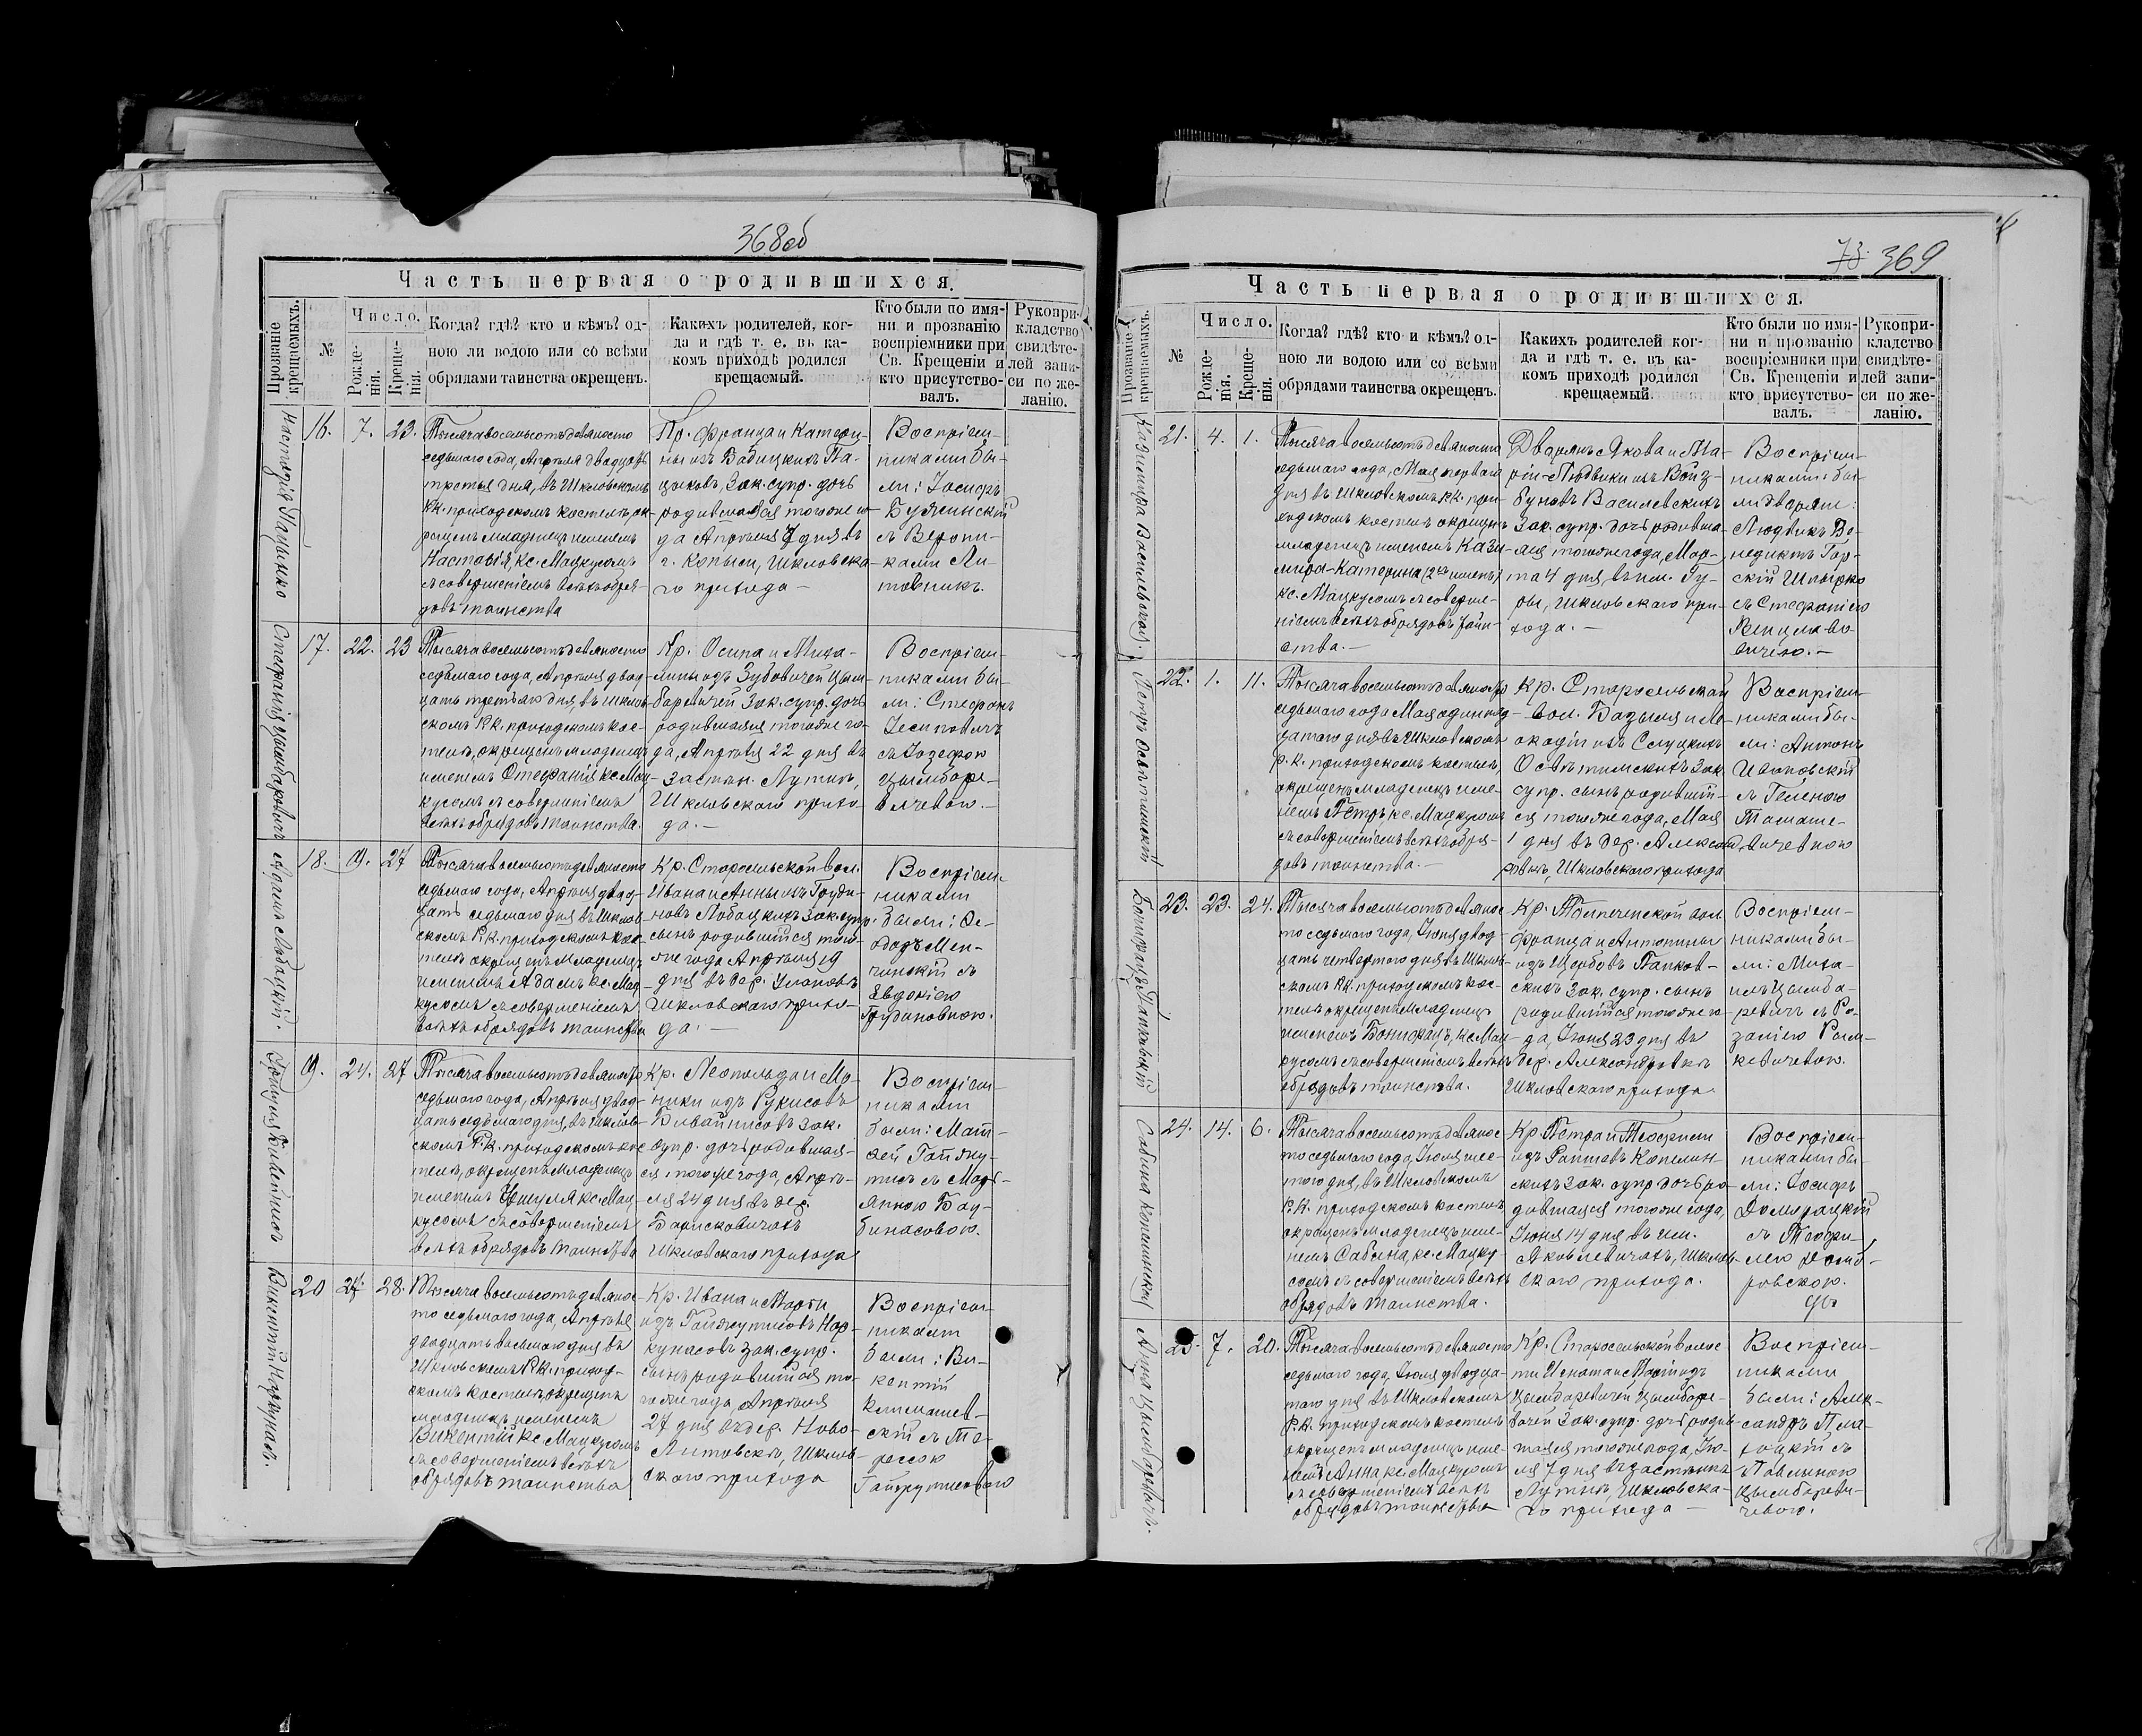 368об
Часть первая о родившихся.
Прозваніе крещаемыхъ.
№
Число.
Рожденія.
Крещенія.
Когда? гдѣ? кто и кѣмъ? одною ли водою или со всѣми обрядами таинства окрещенъ.
Какихъ родителей, когда и гдѣ т. е. въ какомъ приходѣ родился крещаемый.
Кто были по имяни и прозванію воспріемники при Св. Крещеніи и кто присутствовалъ.
Рукоприкладство свидѣтелей записи по желанію.
16. 7. 23.
Тысяча восемьсотъ девяносто
седьмаго года, Апрѣля двадцать
третья дня, въ Шкловскомъ
РК. приходскомъ костелѣ, ок-
рещенъ младенецъ именемъ
кс. Мацкусомъ
съ совершеніемъ всѣхъ обря-
довъ таинства
Кр. Франца и Катери-
ны изъ
зак. супр. дочь
родившаяся тогоже го-
да Апрѣля 7 дня въ
г. Копыси, Шкловска-
го прихода —
Воспріем-
никами бы-
ли: Іосифъ
съ Верони-
кою
Стефанія Цымбаревичъ
17. 22. 23
Тысяча восемьсотъ девяносто
седьмаго года, Апрѣля двад-
цать третьяго дня, въ Шклов-
скомъ РК. приходскомъ кос-
телѣ, окрещенъ младенецъ
именемъ Стефанія кс. Мац-
кусомъ съ совершеніемъ
всѣхъ обрядовъ таинства.
Кр. Осипа и Миха-
лины изъ Зубовичей Цым-
баревичей зак. супр. дочь
родившаяся тогоже го-
да, Апрѣля 22 дня въ
застѣн. Лутнѣ,
Шкловскаго прихо-
да. —
Воспріем-
никами бы-
ли: Стефанъ
Іосифовичъ
съ Іозефою
Цымборе-
вичевою. —
Адамъ Лобацкій.
18. 9. 27
Тысяча восемьсотъ девяносто
седьмаго года, Апрѣля двад-
цать седьмаго дня въ Шклов-
скомъ Р.К. приходскомъ кос-
телѣ окрещенъ младенецъ
именемъ Адамъ кс. Мац-
кусомъ съ совершеніемъ
всѣхъ обрядовъ таинства
Кр. Старосельской вол.
Ивана и Анны изъ Груди-
новъ Лобацкихъ зак. супр.
сынъ родившійся того-
же года Апрѣля 9
дня въ дер. Улановѣ
Шкловскаго прихо-
да. —
Воспріем-
никами
были: Ѳе-
одоръ Мен-
чинскій съ
Евдокіею
Грудиновною.
9. 24. 27
Тысяча восемьсотъ девяносто
седьмаго года, Апрѣля двад-
цать седьмаго дня, въ Шклов-
скомъ Р.К. приходскомъ кос-
телѣ, окрещенъ младенецъ
именемъ кс. Мац-
кусомъ съ совершеніемъ
всѣхъ обрядовъ таинства
Кр. Леопольда и Мо-
ники изъ Рукисовъ
зак.
супр. дочь родившая-
ся тогоже года, Апрѣ-
ля 24 дня въ дер.
Борисковичахъ
Шкловскаго прихода
Воспріем-
никами
были: Мат-
вей
съ Марь-
янною
Викентій Наркунасъ.
20 27. 28.
Тысяча восемьсотъ девянос-
то седьмаго года, Апрѣля
двадцать восьмаго дня въ
Шкловскомъ Р.К. приход-
скомъ костелѣ, окрещенъ
младенецъ именемъ
Викентій кс. Мацкусомъ
съ совершеніемъ всѣхъ
обрядовъ таинства
Кр. Ивана и Марты
изъ Гайжутисовъ Нар-
кунасовъ зак. супр.
сынъ родившійся то-
гоже года, Апрѣля
27 дня въ дер. Ново-
Литовскѣ, Шклов-
скаго прихода
Воспріем-
никами
были: Ви-
кентій
Климашев-
скій съ Те-
ресою
73 369
Часть первая о родившихся.
Прозваніе крещаемыхъ.
№
Число.
Рожденія.
Крещенія.
Когда? гдѣ? кто и кѣмъ? одною ли водою или со всѣми обрядами таинства окрещенъ.
Какихъ родителей когда и гдѣ т. е. въ какомъ приходѣ родился крещаемый.
Кто были по имяни и прозванію воспріемники при Св. Крещеніи и кто присутствовалъ.
Рукоприкладство свидѣтелей записи по желанію.
Казимира Василевская.
21. 4. 1.
Тысяча восемьсотъ девяносто
седьмаго года, Мая перваго
дня въ Шкловскомъ РК. при-
ходскомъ костелѣ окрещенъ
младенецъ именемъ Кази-
мира-Катерина (2хъ именъ)
кс. Мацкусомъ съ соверше-
ніемъ всѣхъ обрядовъ таин-
ства. —
Дворянъ Якова и Ма-
ріи-Людвики изъ Войз-
буновъ Василевскихъ
зак. супр. дочь родивша-
яся тогоже года, Мар-
та 4 дня, въ им. Гу-
ры, Шкловскаго при-
хода. —
Воспріем-
никами бы-
ли дворяне:
Людвикъ Бе-
недиктъ Гор-
скій
съ Стефаніею
Венцлаво-
вичею. —
Петръ Освѣтимскій
22. 1. 11.
Тысяча восемьсотъ девяносто
седьмаго года Мая одиннад-
цатаго дня въ Шкловскомъ
р.К. приходскомъ костелѣ,
окрещенъ младенецъ име-
немъ Петръ кс. Мацкусомъ
съ совершеніемъ всѣхъ обря-
довъ таинства. —
Кр. Старосельской
вол. Базыля и Ле-
окадіи изъ Слуцкихъ
Освѣтимскихъ зак.
супр. сынъ родивший-
ся тогоже года, Мая
1 дня въ дер. Александ-
ровкѣ, Шкловскаго прихода
Воспріем-
никами бы-
ли: Антонъ
Ивановскій
съ Геленою
Томаше-
вичевною
Бонифацъ Папковскій
23. 23. 24.
Тысяча восемьсотъ девянос-
то седьмаго года, Іюня двад-
цать четвертаго дня въ Шклов-
скомъ РК. приходскомъ кос-
телѣ окрещенъ младенецъ
именемъ Бонифацъ, кс. Мац-
кусомъ съ совершеніемъ всѣхъ
обрядовъ таинства.
Кр. Толпеченской вол.
Франца и Антонины
изъ Щербовъ Папков-
скихъ зак. супр. сынъ
родившійся тогоже го-
да, Іюня 23 дня въ
дер. Александровкѣ
Шкловскаго прихода
Воспріем-
никами бы-
ли: Миха-
илъ Цымба-
ревичъ съ Ро-
заліею Рым-
кевичевою.
Сабина Копелинская
24. 14. 6.
Тысяча восемьсотъ девянос-
то седьмаго года, Іюля шес-
того дня, въ Шкловскомъ
Р.К. приходскомъ костелѣ
окрещенъ младенецъ име-
немъ Сабина, кс. Мацку-
сомъ съ совершеніемъ всѣхъ
обрядовъ таинства.
Кр. Петра и Теофили
изъ Копелин-
скихъ зак. супр. дочь ро-
дившаяся тогоже года,
Іюня 14 дня въ им.
Яковлевичахъ, Шклов-
скаго прихода.
Воспріем-
никами бы-
ли: Іосифъ
Домерацкій
съ Теофи-
лею Домб-
ровскою.
Анна Цымборевичъ.
25. 7. 20.
Тысяча восемьсотъ девяносто
седьмаго года, Іюля двадца-
таго дня въ Шкловскомъ
Р.К. приходскомъ костелѣ
окрещенъ младенецъ име-
немъ Анна кс. Мацкусомъ
съ совершеніемъ всѣхъ
обрядовъ таинства
Кр. Старосельской волос-
ти Игната и Маріи изъ
Цымборевичей Цымборе-
вичей зак. супр. дочь родив-
шаяся тогоже года, Ію-
ля 7 дня въ застѣнкѣ
Лутнѣ, Шкловска-
го прихода —
Воспріем-
никами
были: Алек-
сандръ
съ
Павлиною
Цымбореви-
чевою.